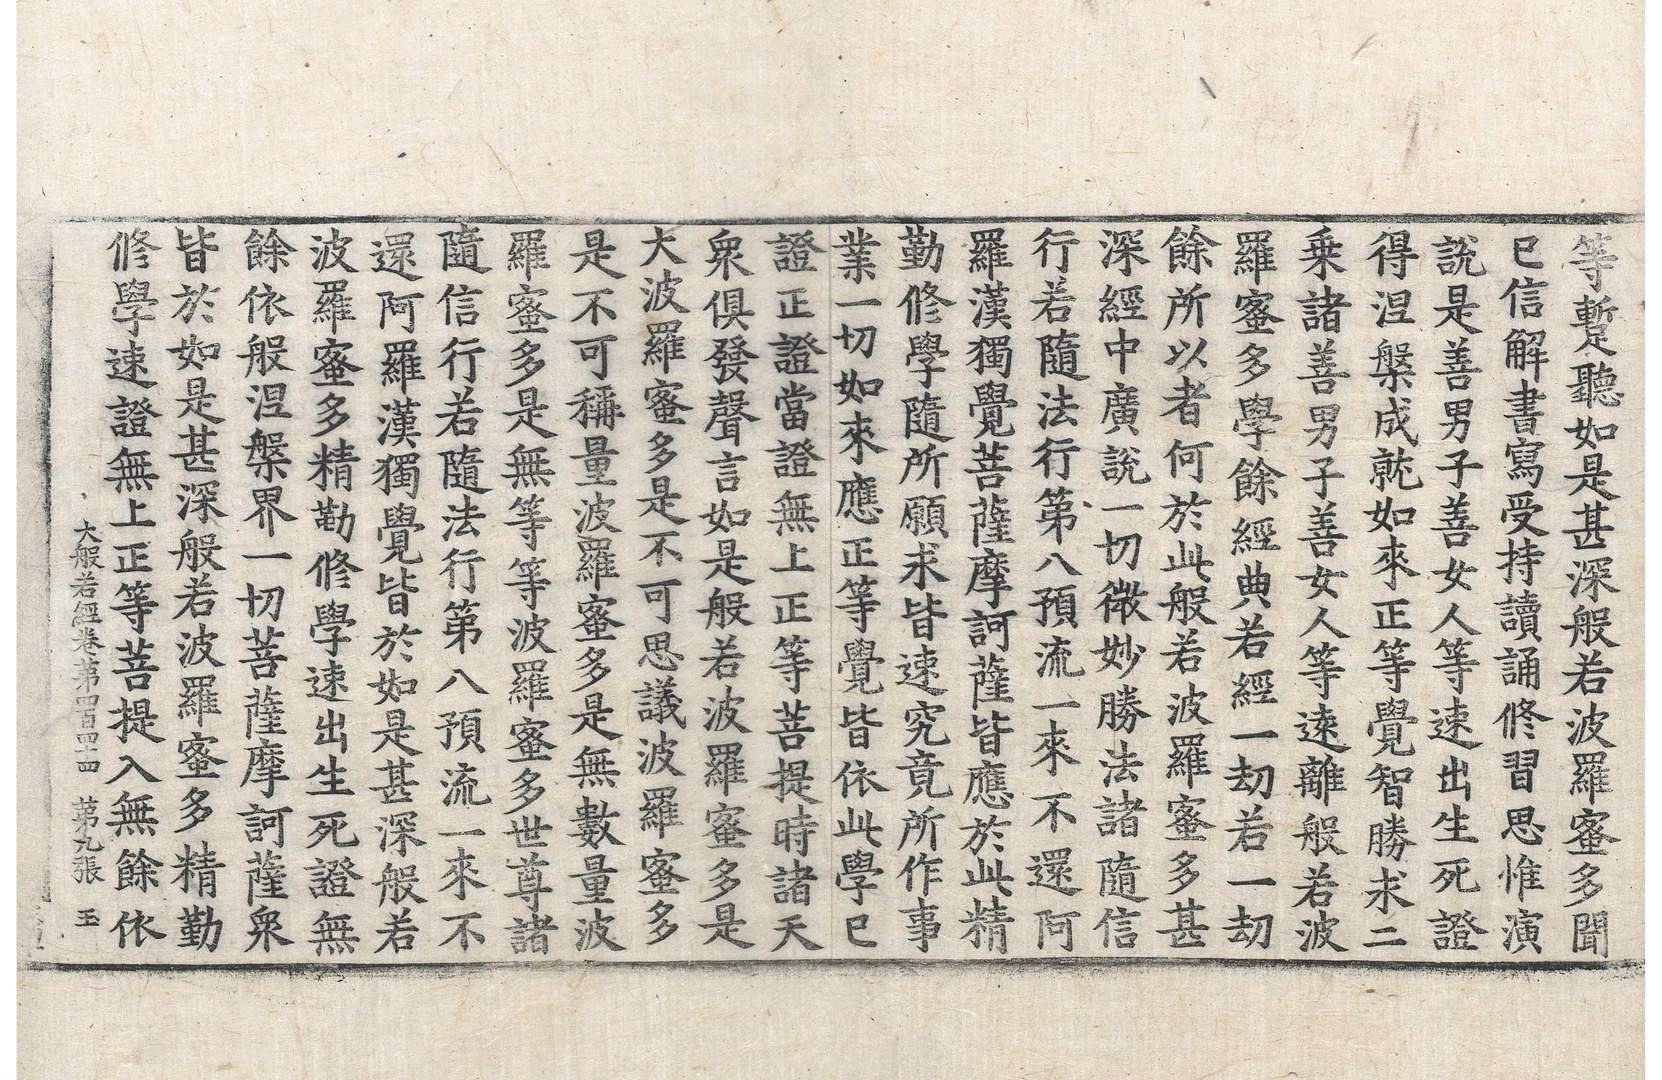 等蹔聽如是甚深般若波羅蜜多聞
已信解書寫受持讀誦修習思惟演
說是善男子善女人等速出生死證
得涅槃成就如來正等覺智勝求二
乘諸善男子善女人等遠離般若波
羅蜜多學餘經典若經一劫若一劫
餘所以者何於此般若波羅蜜多甚
深經中廣說一切微妙勝法諸隨信
行若隨法行第八預流一來不還阿
羅漢獨覺菩薩摩訶薩皆應於此精
勤修學隨所願求皆速究竟所作事
業一切如來應正等覺皆依此學已
證正證當證無上正等菩提時諸天
衆俱發聲言如是般若波羅蜜多是
大波羅蜜多是不可思議波羅蜜多
是不可稱量波羅蜜多是無數量波
羅蜜多是無等等波羅蜜多世尊諸
隨信行若隨法行第八預流一來不
還阿羅漢獨覺皆於如是甚深般若
波羅蜜多精勤修學速出生死證無
餘依般涅槃界一切菩薩摩訶薩衆
皆於如是甚深般若波羅蜜多精勤
修學速證無上正等菩提入無餘依
大般若經卷第四百四十四 第九張 玉